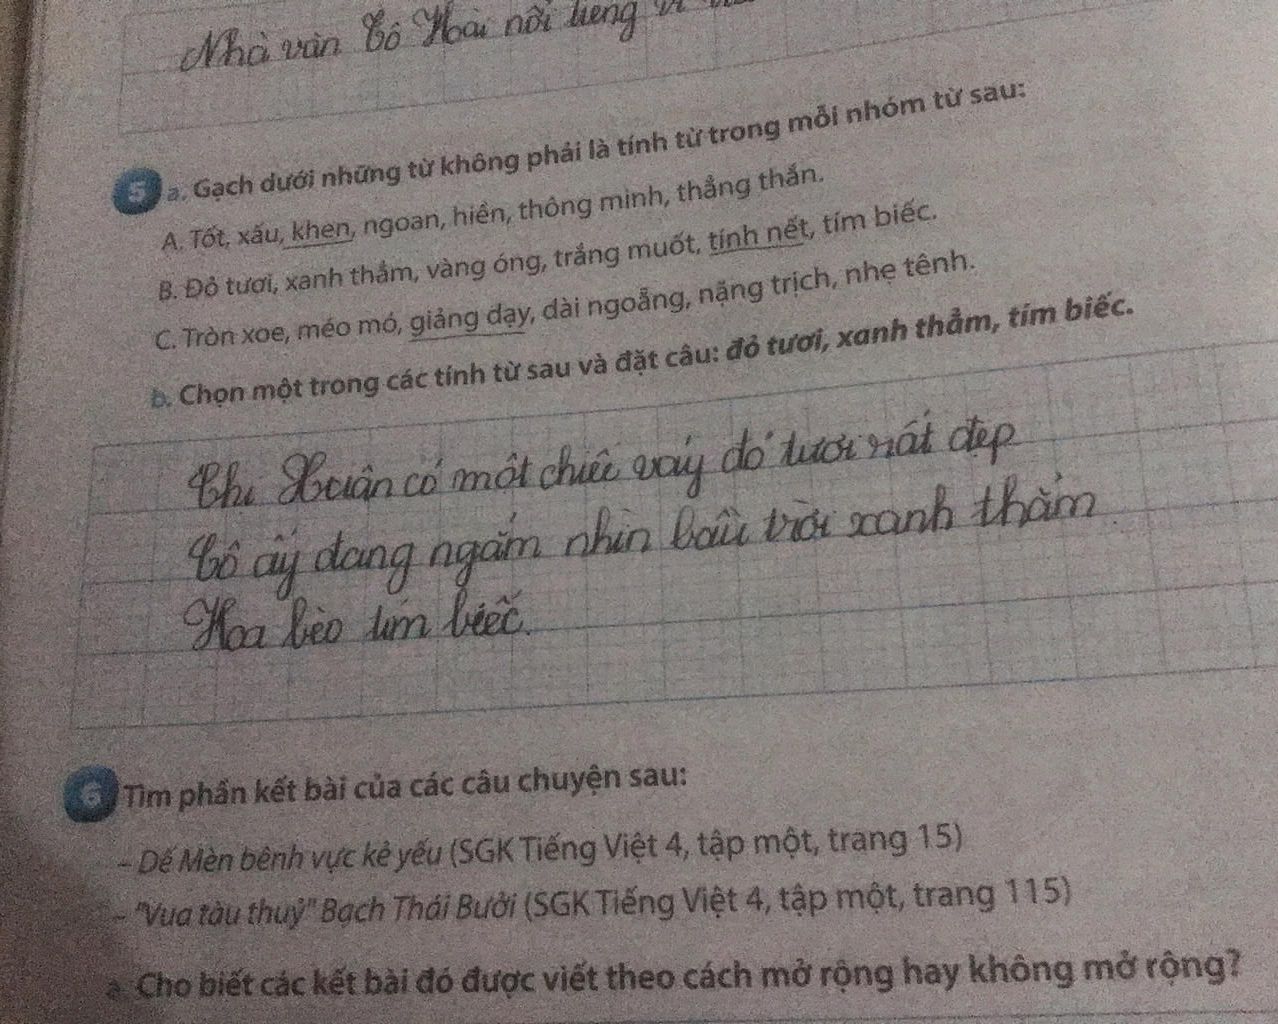 Nhà văn Tô Hoài nổi tiếng vì
5 a. Gạch dưới những từ không phải là tính từ trong mỗi nhóm từ sau:
A. Tốt, xấu, khen, ngoan, hiền, thông minh, thẳng thắn.
B. Đỏ tươi, xanh thẳm, vàng óng, trắng muốt, tính nết, tím biếc.
C. Tròn xoe, méo mó, giảng dạy, dài ngoẵng, nặng trịch, nhẹ tênh.
b. Chọn một trong các tính từ sau và đặt câu: đỏ tươi, xanh thẳm, tím biếc.
Chị Xuân có một chiếc váy đỏ tươi rất đẹp
Cô ấy đang ngắm nhìn bầu trời xanh thẳm
Hoa bèo tím biếc.
6 Tìm phần kết bài của các câu chuyện sau:
- Dế Mèn bênh vực kẻ yếu (SGK Tiếng Việt 4, tập một, trang 15)
- "Vua tàu thuỷ" Bạch Thái Bưởi (SGK Tiếng Việt 4, tập một, trang 115)
a. Cho biết các kết bài đó được viết theo cách mở rộng hay không mở rộng?